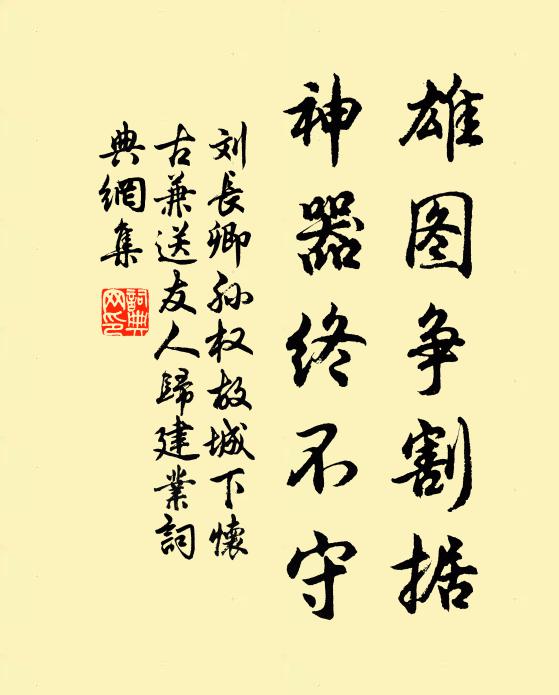 雄图争割据
神器终不守
刘長卿孙权故城下懷
古兼送友人歸建業詞
典網集
詞典
网印